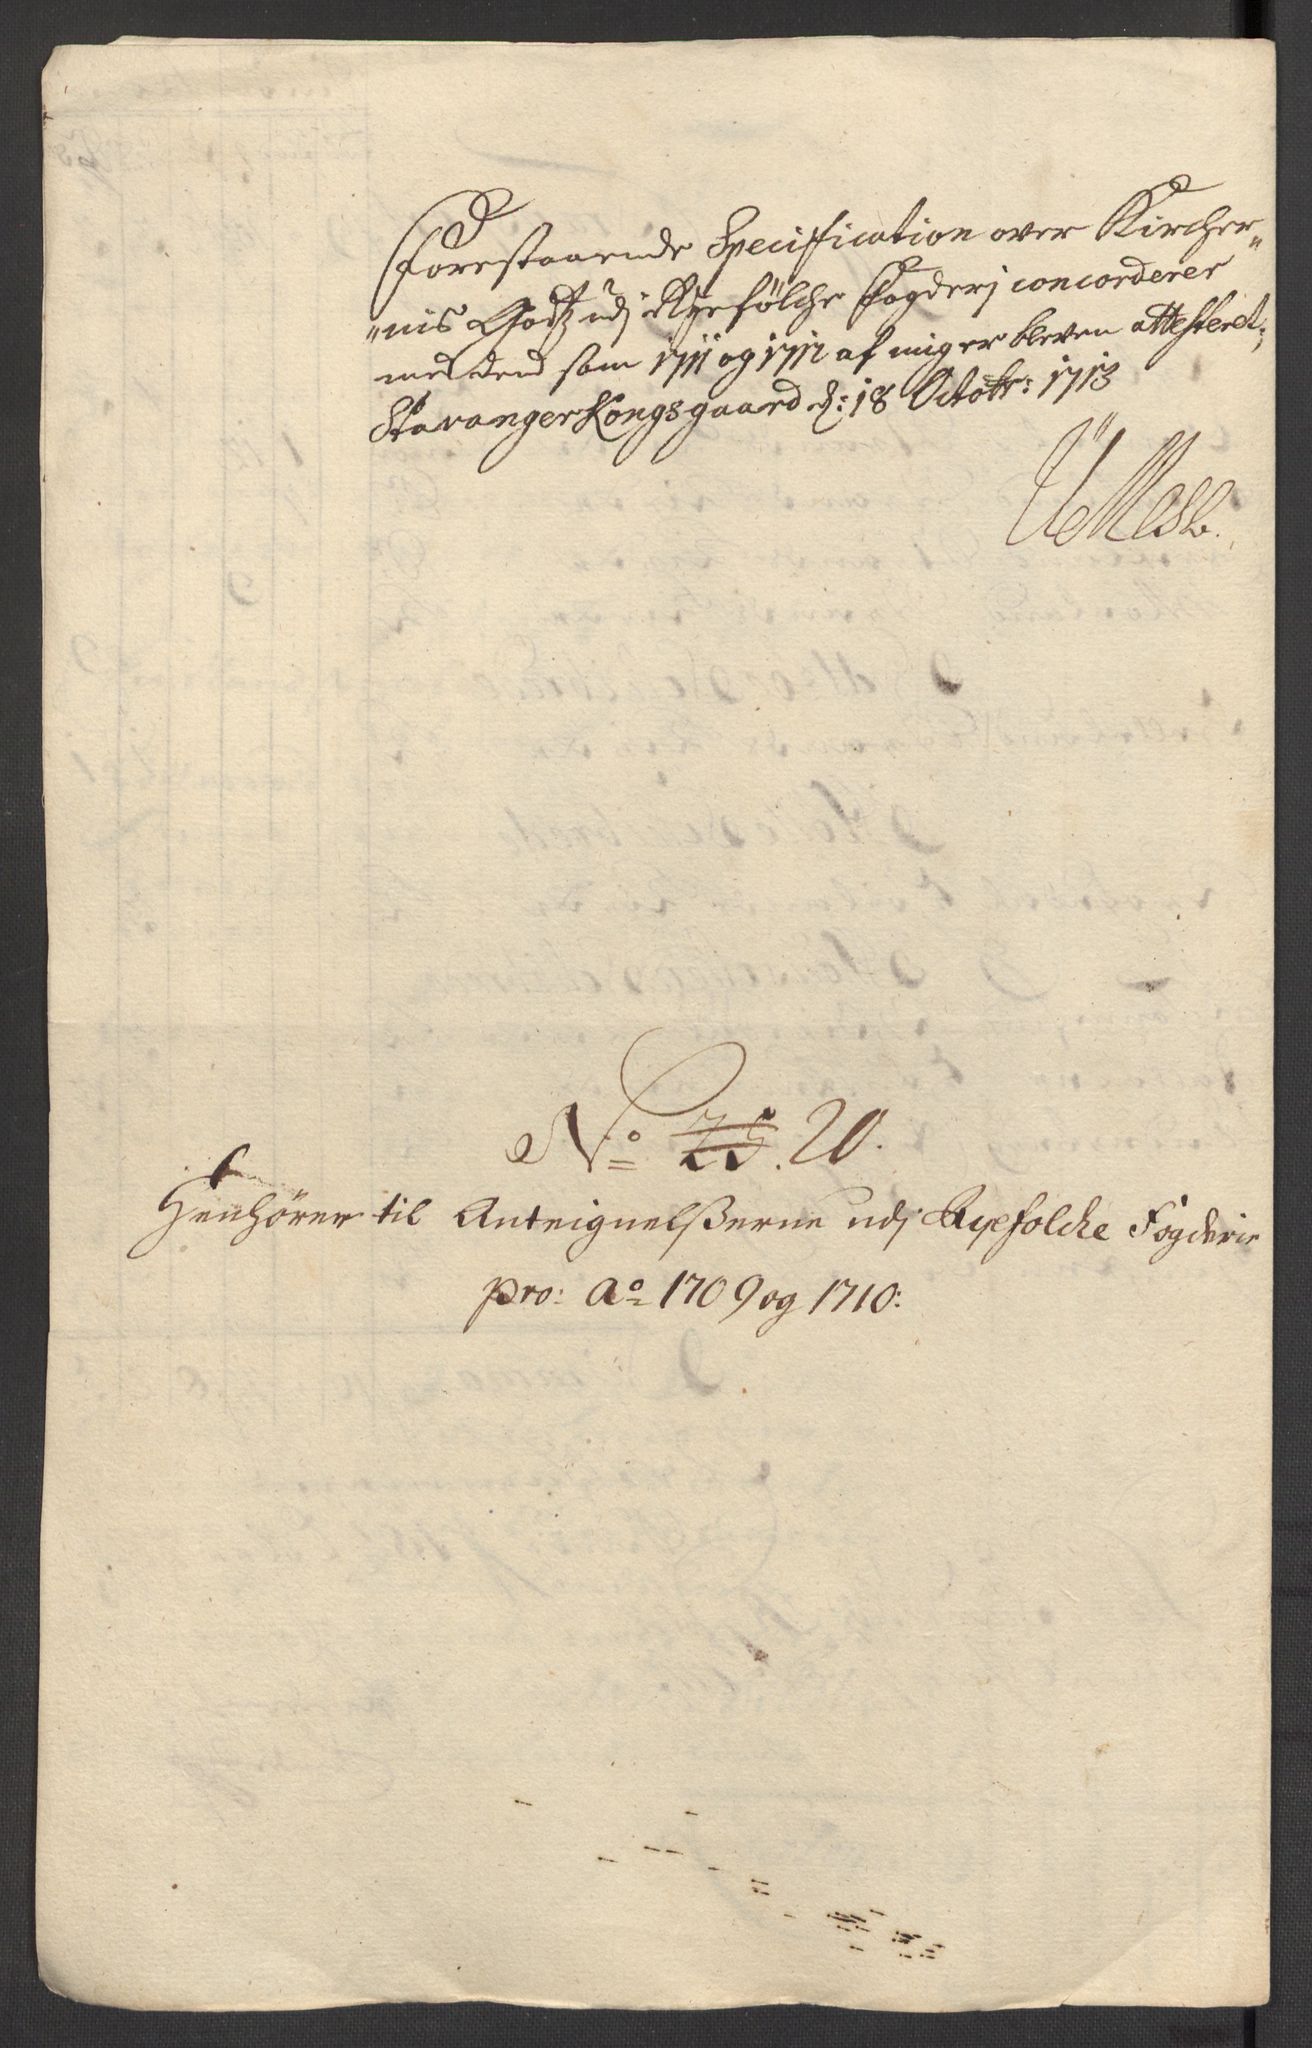 Forestaaende Specification over Kircher„
„nis Godtz udj Ryefølche Fogderj concorderer
med dend som 1711 og 1712 af mig er bleven attesteret,
Stavanger Kongsgaard d: 18 Octobr: 1713
No 25. 20.
Henhører til Anteignelßerne udj Ryefolche Fogderie
pro: Ao 1709 og 1710: